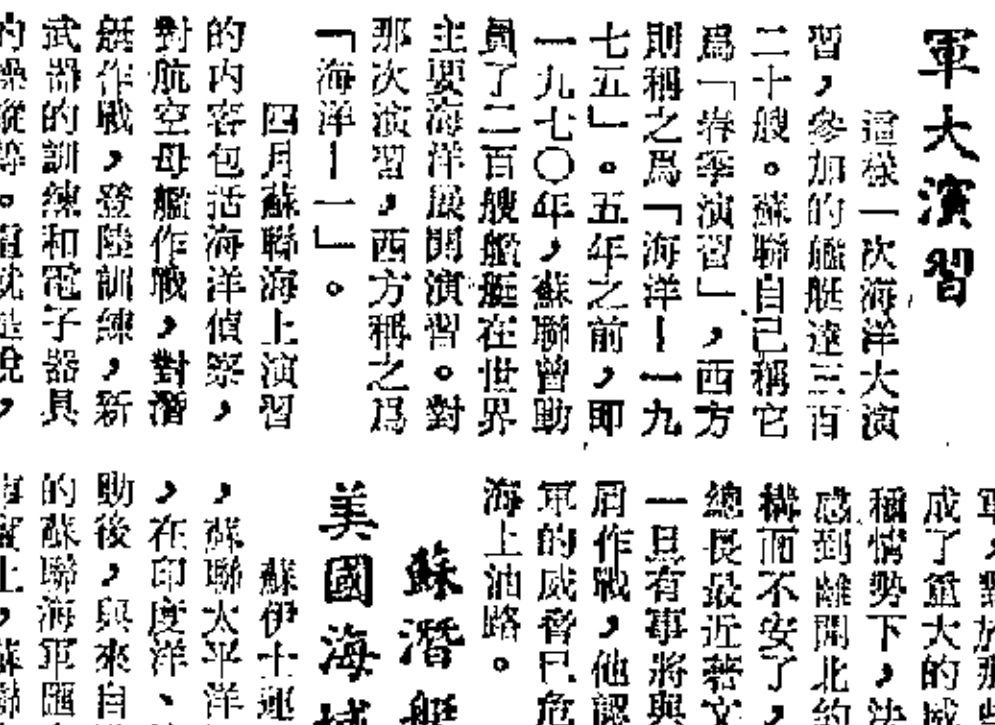 軍大演習
這樣一次海洋大演
習，參加的艦艇達三百
二十艘。蘇聯自己稱它
爲「春季演習」，西方
則稱之爲「海洋－一九
七五」。五年之前，即
一九七〇年，蘇聯曾助
員了二百艘艦艇在世界
主要海洋展開演習。對
那次演習，西方稱之爲
「海洋－一」。
四月蘇聯海上演習
的內容包括海洋偵察，
對航空母艦作戰，對潛
艇作戰，登陸訓練，新
武器的訓練和電子器具
的操縱等。
軍，對於那些
成了重大的威
稱情勢下，決
感到離開北約
構而不安了，
總長最近著文
一旦有事將與
盾作戰，他認
軍的威脅已危
海上油路。
蘇潛艇
美國海域
蘇伊士運
，蘇聯太平洋
，在印度洋、
助後，與來自
的蘇聯海軍匯
事實上，蘇聯